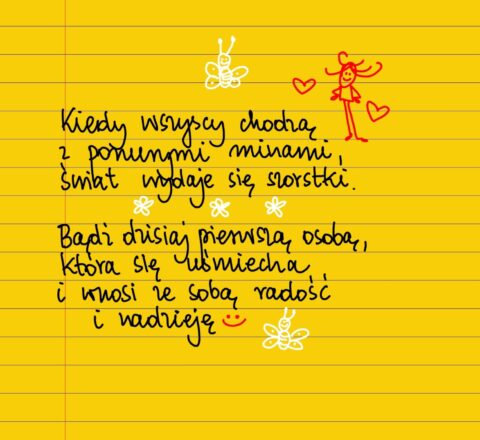 Kiedy wszyscy chodzą
z ponurymi minami,
świat wydaje się szorstki.
Bądź dzisiaj pierwszą osobą,
która się uśmiecha
i wnosi ze sobą radość
i nadzieję